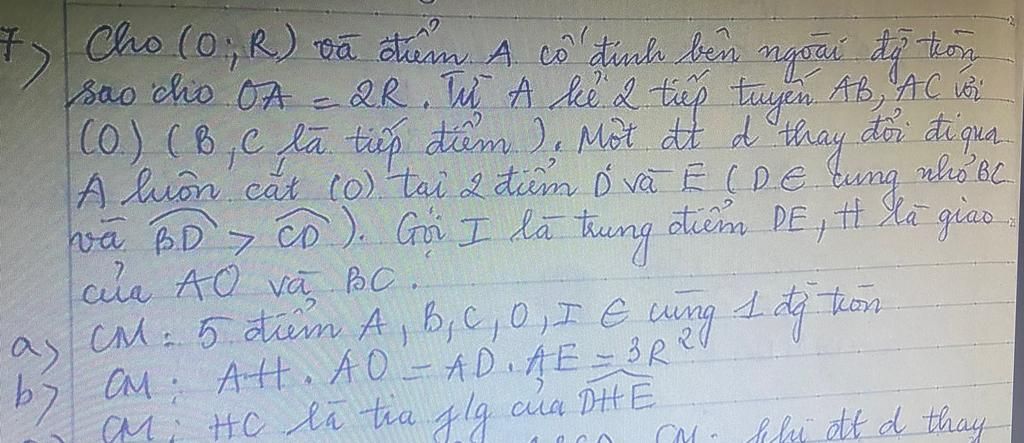 7) Cho (O; R) và điểm A cố định bên ngoài đg tròn
sao cho OA = 2R. Từ A kẻ 2 tiếp tuyến AB, AC với
(O) (B, C là tiếp điểm). Một đt d thay đổi đi qua
A luôn cắt (O) tại 2 điểm D và E (D ∈ cung nhỏ BC
và BD > CD). Gọi I là trung điểm DE, H là giao
của AO và BC.
a) CM: 5 điểm A, B, C, O, I ∈ cùng 1 đg tròn
b) CM: AH. AO = AD. AE = 3R²
CM: HC là tia f/g của DHE
CM: khi đt d thay